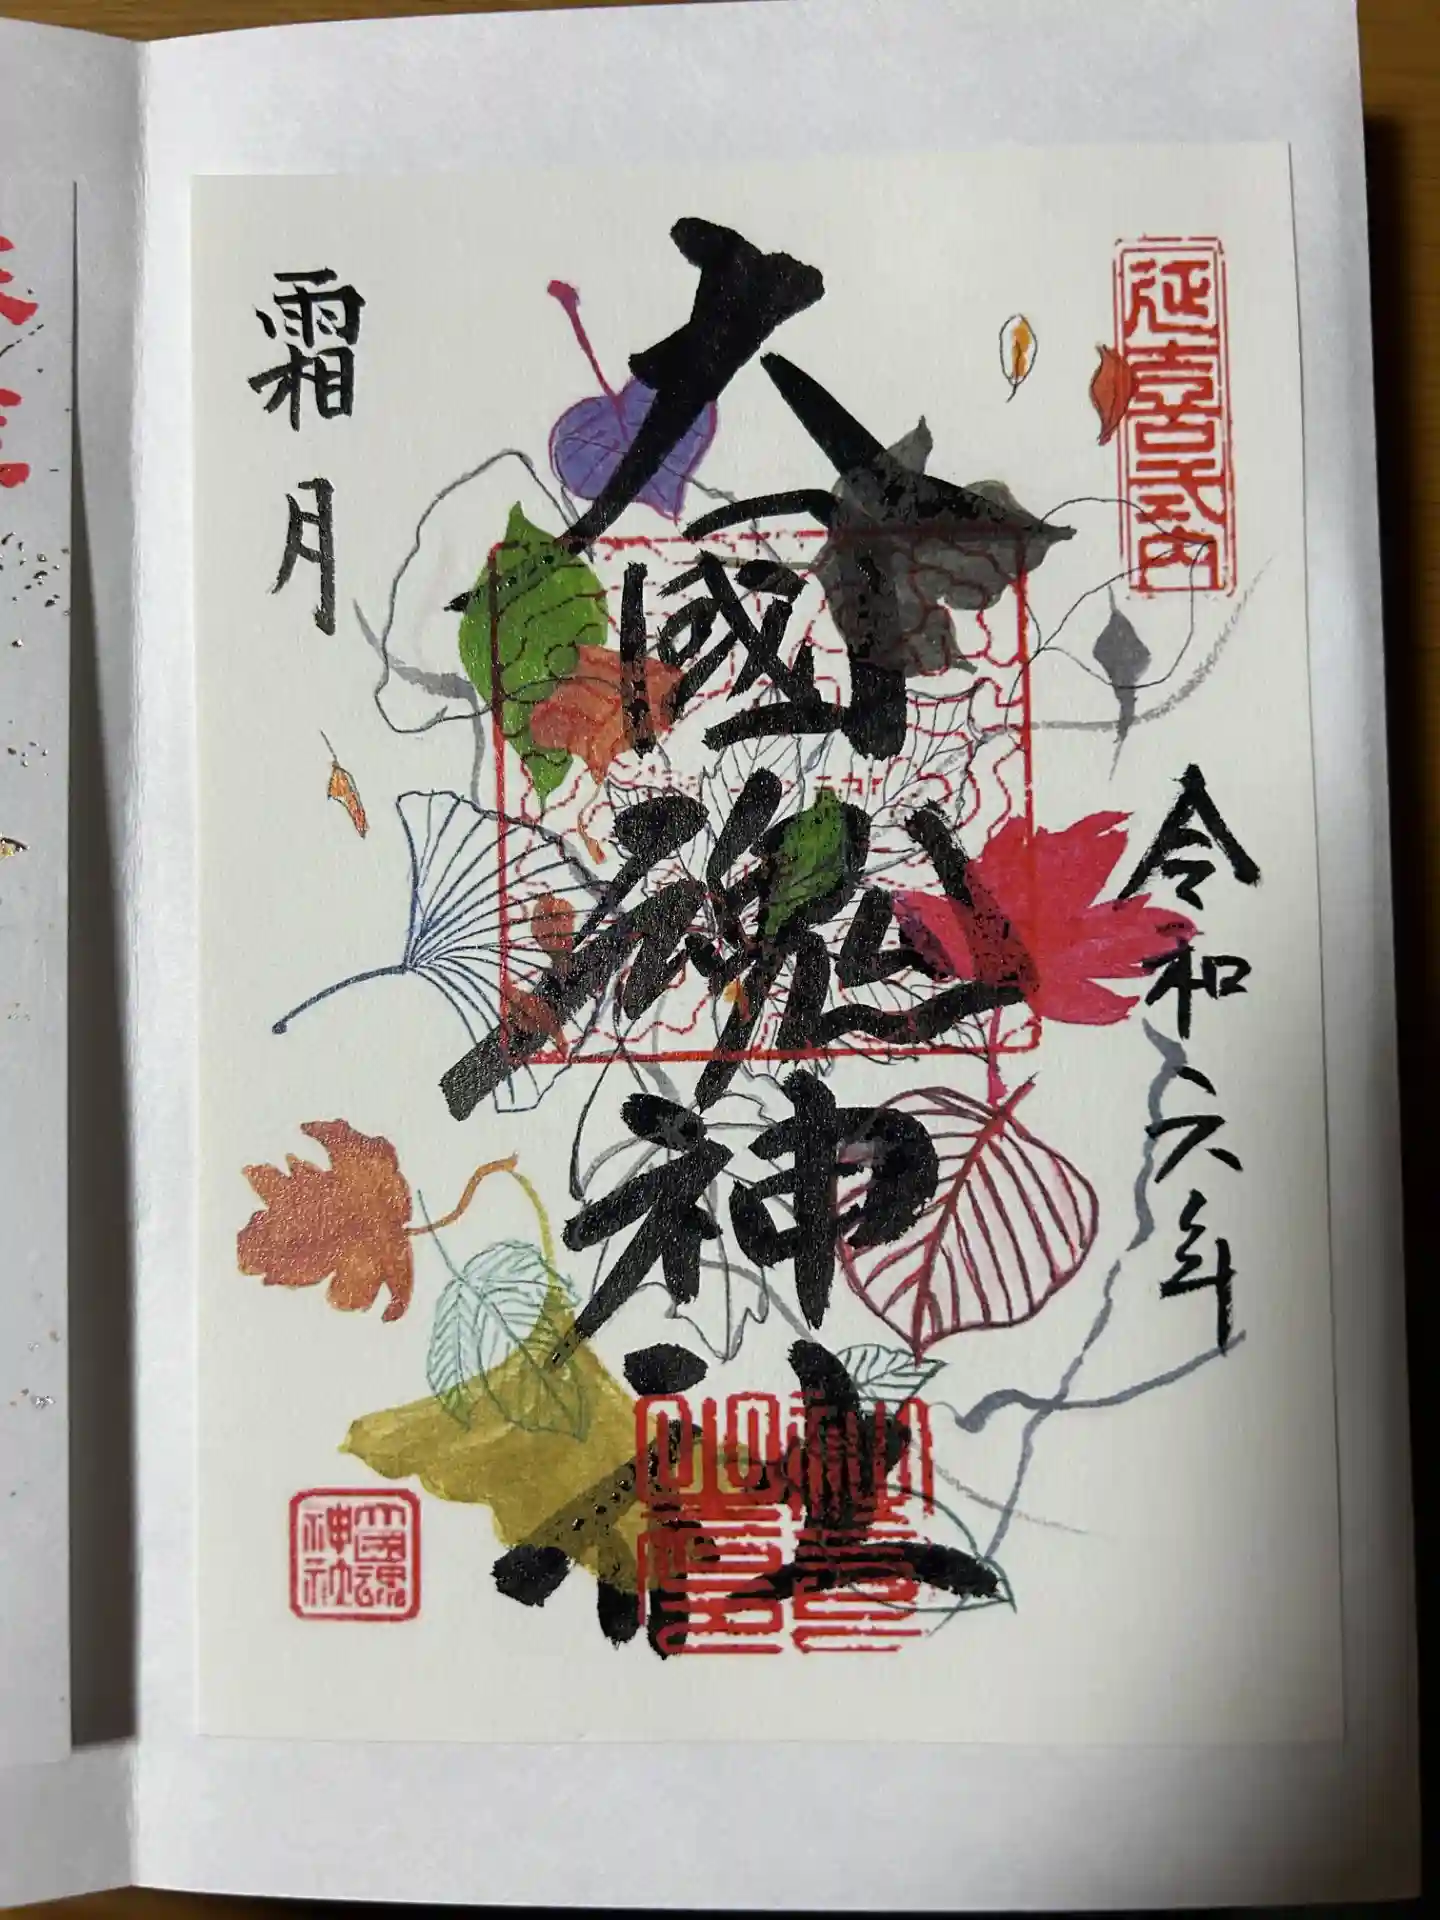 延喜式内
令和六年
大國魂神社
霜月
大國魂
神社